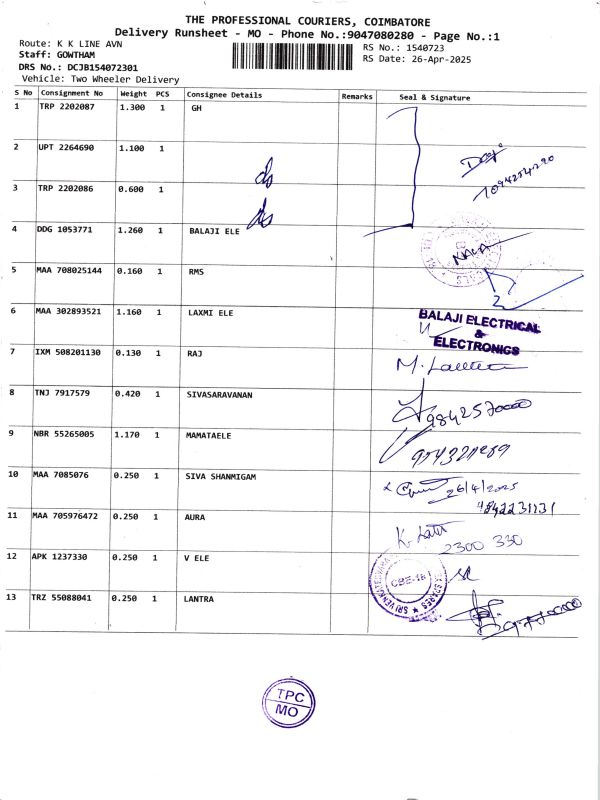 THE PROFESSIONAL COURIERS, COIMBATORE
Delivery Runsheet - MO - Phone No.:9047080280 - Page No.:1
Route: K K LINE AVN
RS No.: 1540723
Staff: GOWTHAM
RS Date: 26-Apr-2025
DRS No.: DCJB154072301
Vehicle: Two Wheeler Delivery
S No Consignment No Weight PCS Consignee Details Remarks Seal & Signature
1 TRP 2202087 1.300 1 GH
2 UPT 2264690 1.100 1
3 TRP 2202086 0.600 1
4 DDG 1053771 1.260 1 BALAJI ELE
5 MAA 708025144 0.160 1 RMS
6 MAA 302893521 1.160 1 LAXMI ELE
BALAJI ELECTRICAL
&
ELECTRONICS
7 IXM 508201130 0.130 1 RAJ
8 TNJ 7917579 0.420 1 SIVASARAVANAN
9842570000
9 NBR 55265005 1.170 1 MAMATAELE
10 MAA 7085076 0.250 1 SIVA SHANMIGAM
26/4/2025
11 MAA 705976472 0.250 1 AURA
2300 330
12 APK 1237330 0.250 1 V ELE
CBE-18
13 TRZ 55088041 0.250 1 LANTRA
TPC
MO